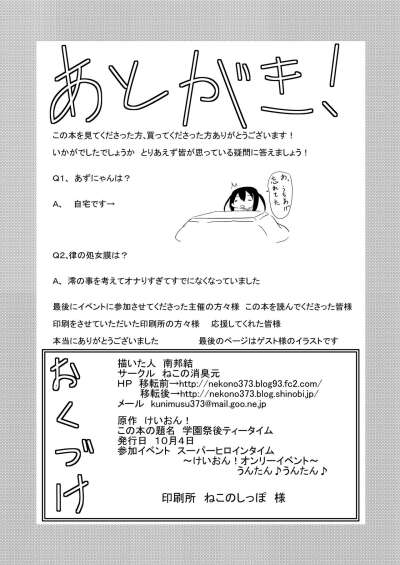 あとがき!
この本を見てくださった方、買ってくださった方ありがとうございます!
いかがでしたでしょうか とりあえず皆が思っている疑問に答えましょう!
Q1、 あずにゃんは?
A、 自宅です→
最後にイベントに参加させてくださった主催の方々様 この本を読んでくださった皆様
印刷をさせていただいた印刷所の方々様 応援してくれた皆様
本当にありがとうございました 最後のページはゲスト様のイラストです
おくづけ
描いた人 南邦結
サークル ねこの消臭元
HP 移転前→http://nekono373.blog93.fc2.com/
移転後→http://nekono373.blog.shinobi.jp/
メール kunimusu373@mail.goo.ne.jp
原作 けいおん!
この本の題名 学園祭後ティータイム
発行日 10月4日
参加イベント スーパーヒロインタイム
~けいおん!オンリーイベント~
うんたん♪うんたん♪
印刷所 ねこのしっぽ 様